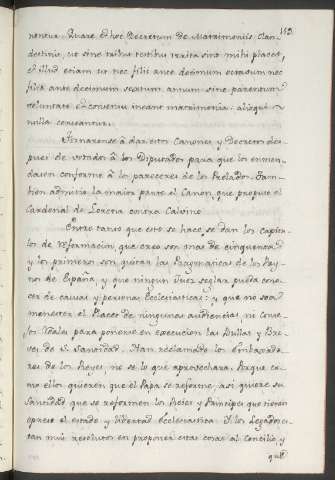 113
nentur. Quare et hoc Decretum de Matrimoniis clan-
destinis, ut sine tribus testibus irrita sint mihi placet,
et illud etiam ut nec filii ante decimum octavum nec
filiæ ante decimum sextum annum sine parentum
voluntate et consensu ineant matrimonia: alioqui
nulla censeantur.
Tornaronse â dar estos Canones y Decreto des-
pues de votados â los Diputados para que los enmen-
dasen conforme â los pareceres de los Prelados. Tam-
bien admitio la maior parte el Canon, que propuso el
Cardenal de Lorena contra Calvino.
Entre tanto que esto se hace se dan los capitu-
los de reformacion, que creo son mas de cinquenta
y los primeros son quitar las Pragmaticas de los Rey-
nos de España, y que ningun Juez seglar pueda cono-
cer de causas y personas Ecclesiasticas: y que no sea
menester el Placet de ningunas audiencias, ni conse-
jos Reales para ponerse en execucion las Bullas y Bre-
ves de S. Santidad. Han reclamado los Embaxado-
res de los Reyes, no se lo que aprovechara. Porque co-
mo ellos quieren que el Papa se reforme, asi quiere su
Santidad que se reformen los Reies y Principes que tienen
opreso el estado y libertad Ecclesiastica. Y los Legados es-
tan mui resolutos en proponer estas cosas al Concilio, y
que